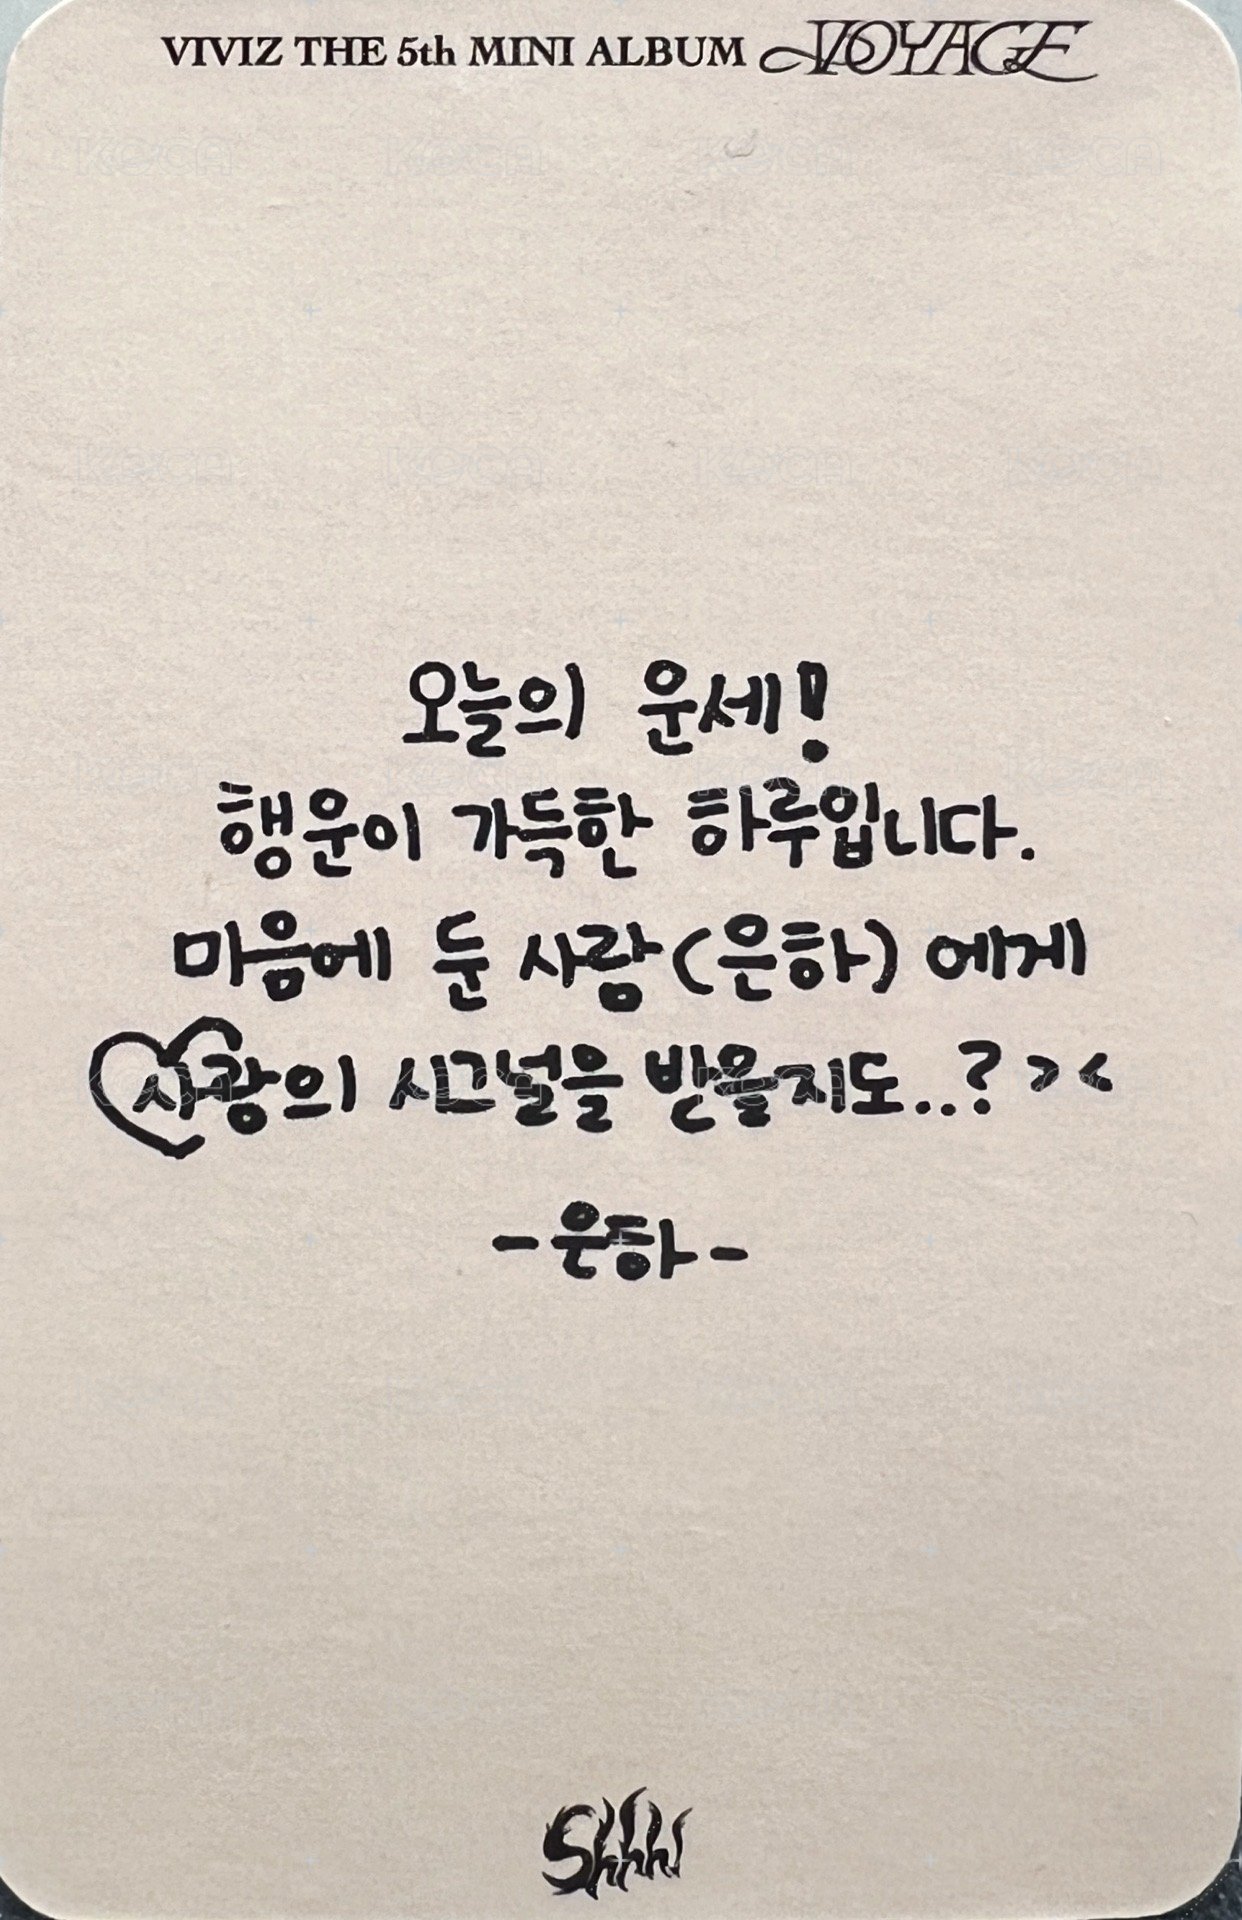 VIVIZ THE 5th MINI ALBUM VOYAGE
오늘의 운세!
행운이 가득한 하루입니다.
마음에 둔 사람(은하)에게
사랑의 시그널을 받을지도..? > <
-은하-
Shhh!